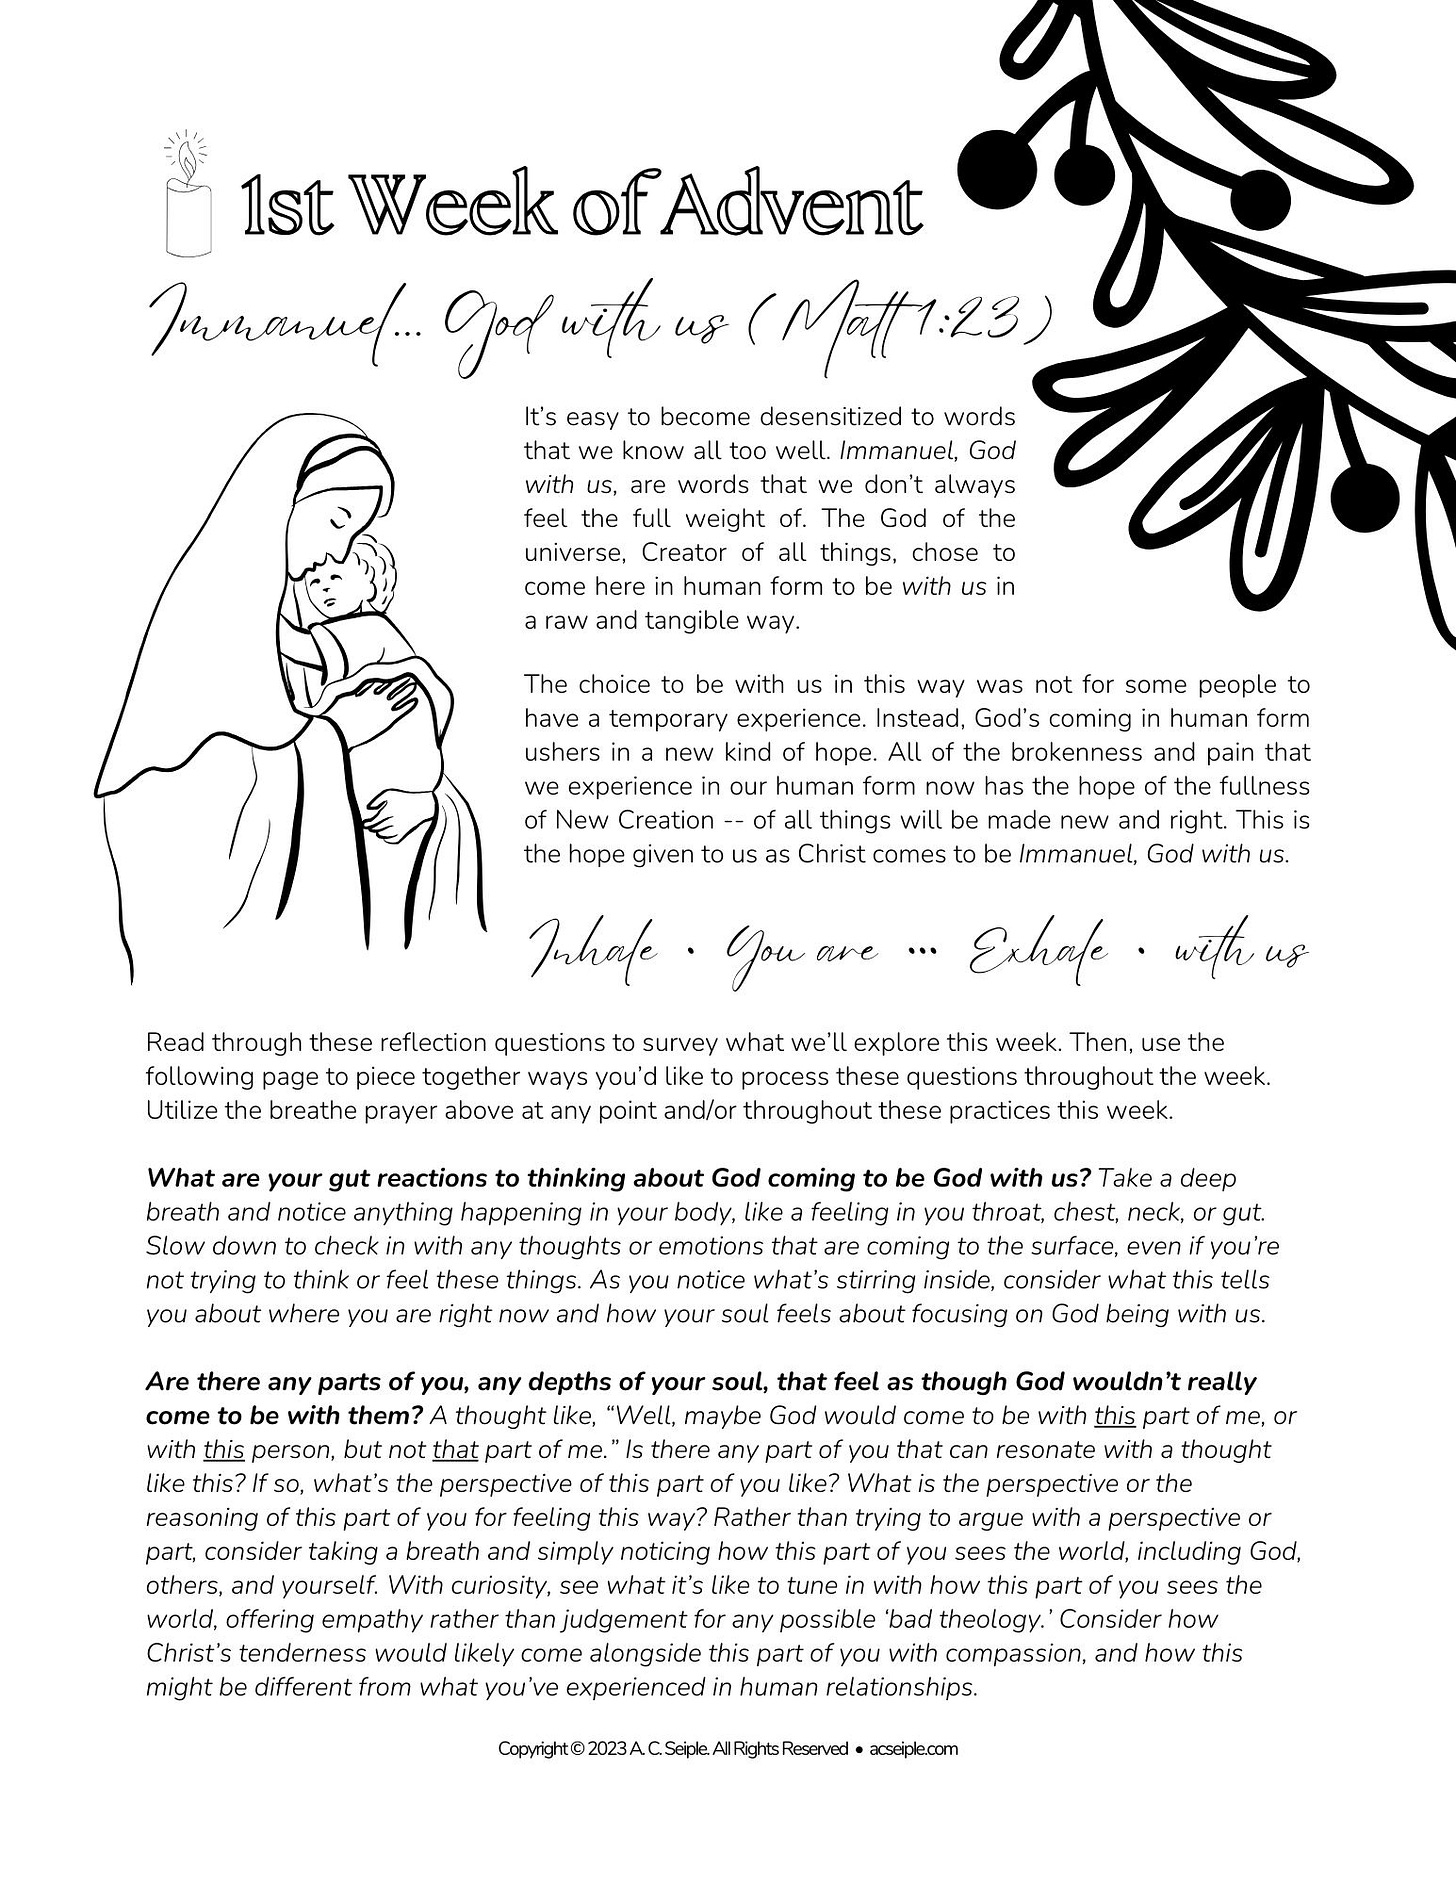 1st Week of Advent
Immanuel... God with us (Matt 1:23)
It's easy to become desensitized to words
that we know all too well. Immanuel, God
with us, are words that we don't always
feel the full weight of. The God of the
universe, Creator of all things, chose to
come here in human form to be with us in
a raw and tangible way.
The choice to be with us in this way was not for some people to
have a temporary experience. Instead, God's coming in human form
ushers in a new kind of hope. All of the brokenness and pain that
we experience in our human form now has the hope of the fullness
of New Creation -- of all things will be made new and right. This is
the hope given to us as Christ comes to be Immanuel, God with us.
Inhale • You are ••• Exhale • with us
Read through these reflection questions to survey what we'll explore this week. Then, use the
following page to piece together ways you'd like to process these questions throughout the week.
Utilize the breathe prayer above at any point and/or throughout these practices this week.
What are your gut reactions to thinking about God coming to be God with us? Take a deep
breath and notice anything happening in your body, like a feeling in you throat, chest, neck, or gut.
Slow down to check in with any thoughts or emotions that are coming to the surface, even if you're
not trying to think or feel these things. As you notice what's stirring inside, consider what this tells
you about where you are right now and how your soul feels about focusing on God being with us.
Are there any parts of you, any depths of your soul, that feel as though God wouldn't really
come to be with them? A thought like, "Well, maybe God would come to be with this part of me, or
with this person, but not that part of me." Is there any part of you that can resonate with a thought
like this? If so, what's the perspective of this part of you like? What is the perspective or the
reasoning of this part of you for feeling this way? Rather than trying to argue with a perspective or
part, consider taking a breath and simply noticing how this part of you sees the world, including God,
others, and yourself. With curiosity, see what it's like to tune in with how this part of you sees the
world, offering empathy rather than judgement for any possible 'bad theology.' Consider how
Christ's tenderness would likely come alongside this part of you with compassion, and how this
might be different from what you've experienced in human relationships.
Copyright © 2023 A. C. Seiple. All Rights Reserved • acseiple.com